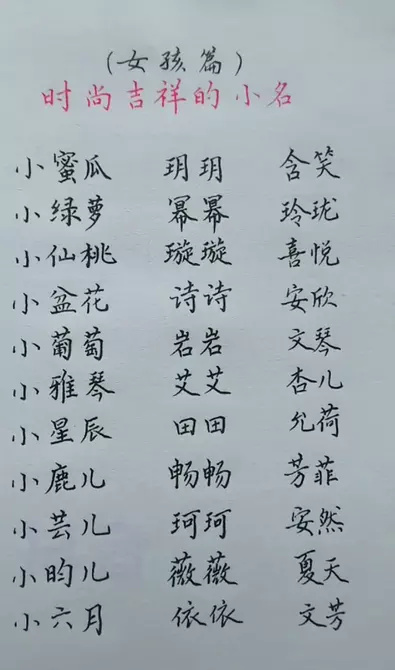 (女孩篇)
时尚吉祥的小名
小蜜瓜 玥玥 含笑
小绿萝 幂幂 玲珑
小仙桃 璇璇 喜悦
小盆花 诗诗 安欣
小葡萄 岩岩 文琴
小雅琴 艾艾 杏儿
小星辰 田田 允荷
小鹿儿 畅畅 芳菲
小芸儿 珂珂 安然
小昀儿 薇薇 夏天
小六月 依依 文芳